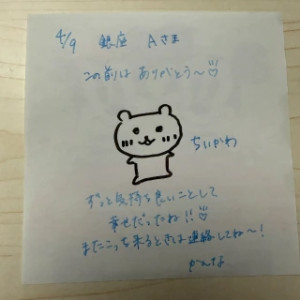 4/9 銀座 Aさま
この前は ありがとう〜
ちいかわ
ずっと気持ち良いことして
幸せだったね!!
またこっち来るときは連絡してね〜!